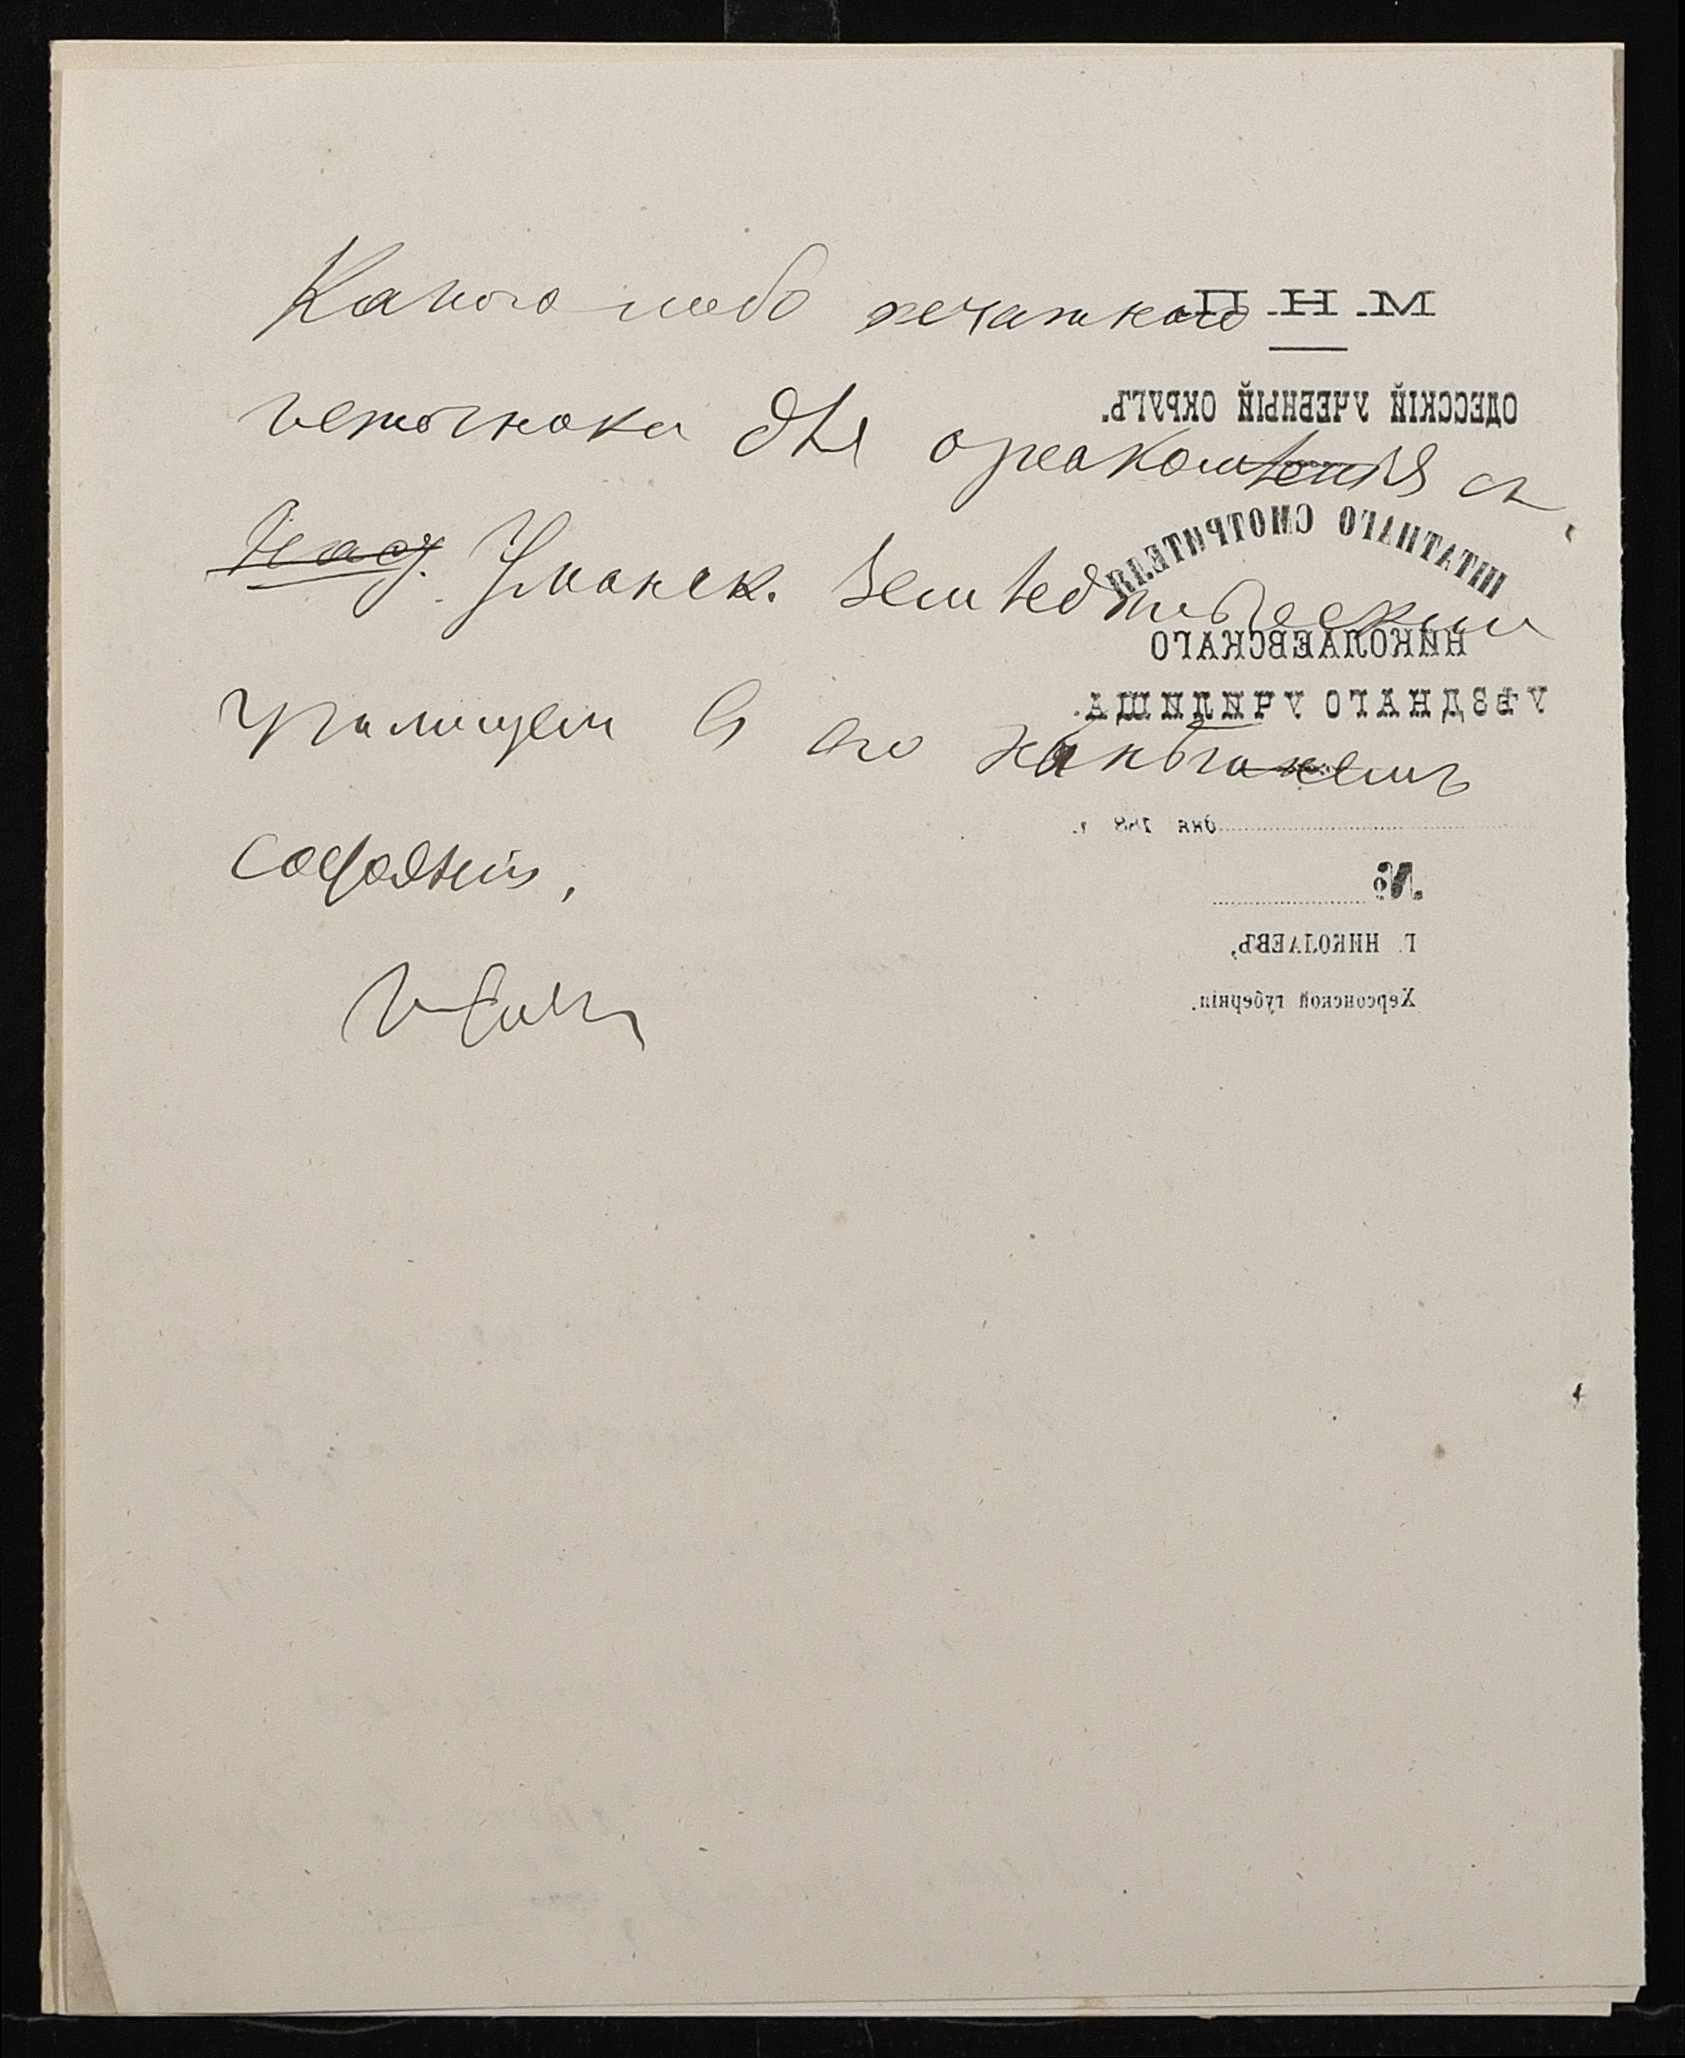 Какого либо печатного
источника для ознакомленія съ
Наст. Уманск. земледѣльческим
училищем в его нынѣшнемъ
состояніи,
М. Н. П.
ОДЕССКІЙ УЧЕБНЫЙ ОКРУГЪ.
ШТАТНАГО СМОТРИТЕЛЯ
НИКОЛАЕВСКАГО
УѢЗДНАГО УЧИЛИЩА.
дня 188 г.
№
Г. НИКОЛАЕВЪ,
Херсонской губерніи.